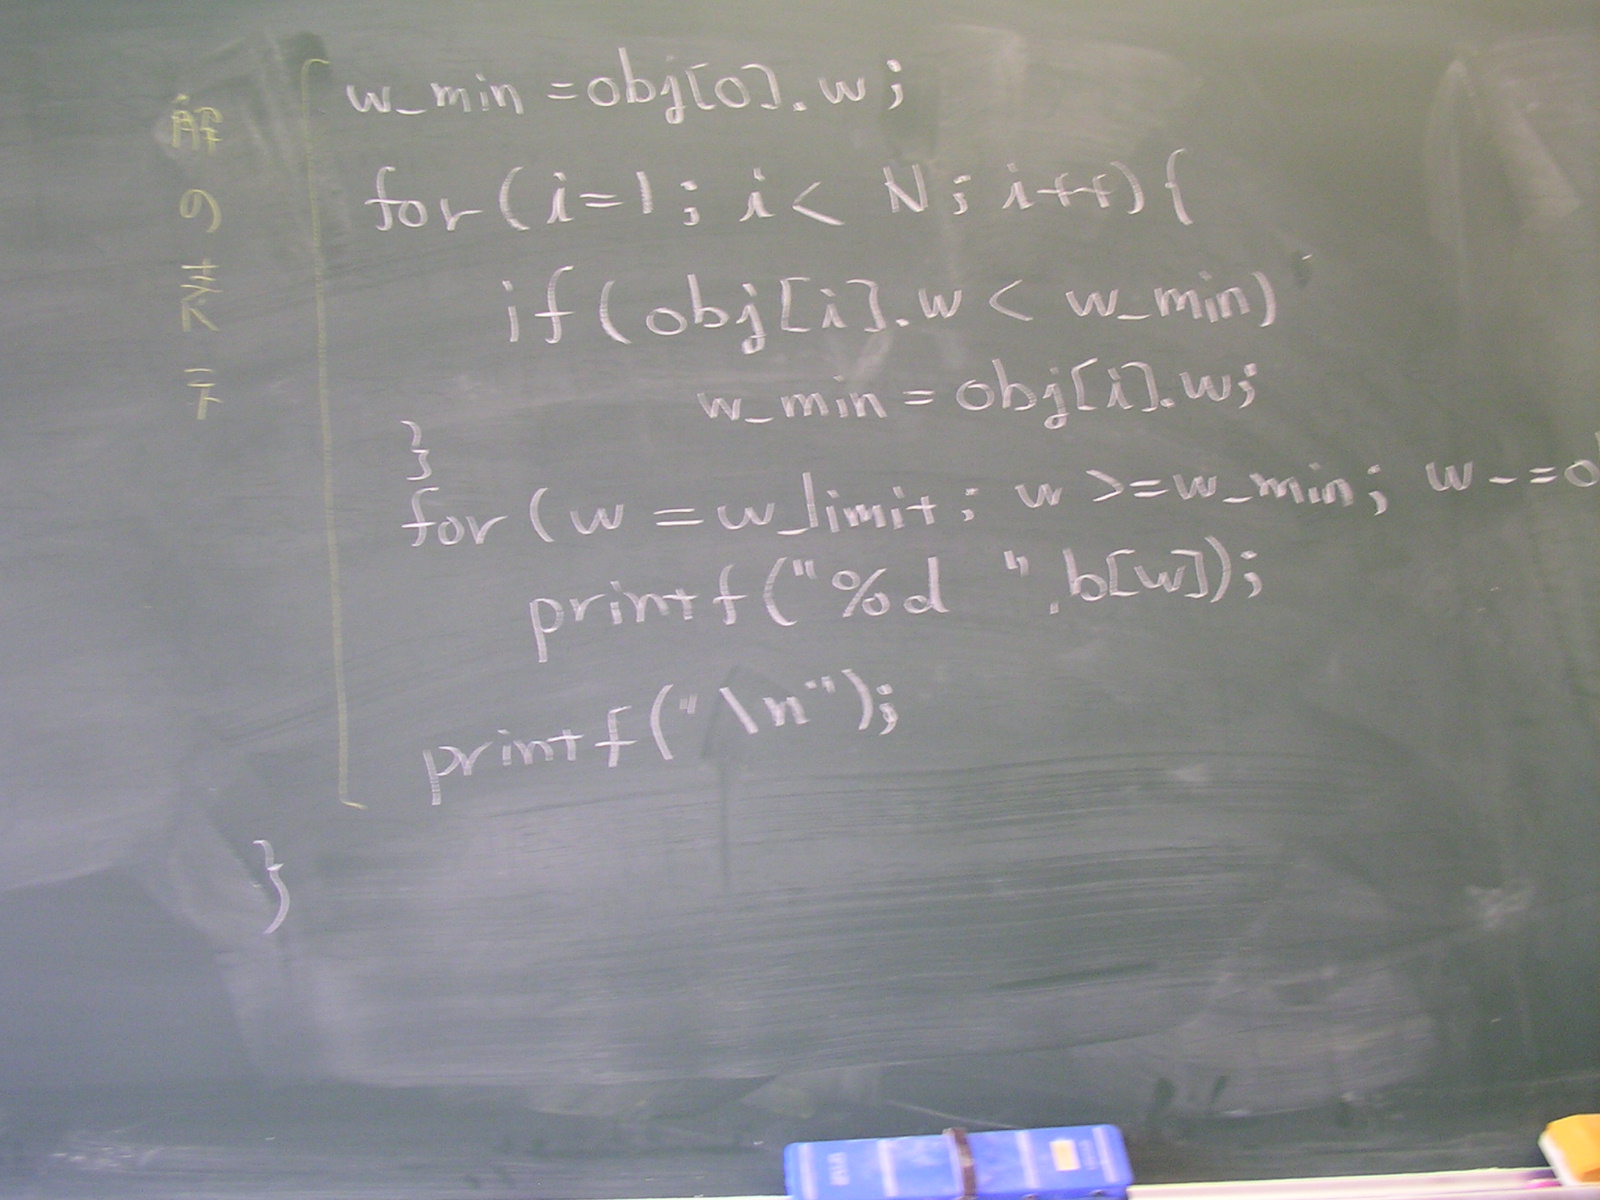 解の表示
w_min = obj[0].w;
for (i=1; i < N; i++) {
if (obj[i].w < w_min)
w_min = obj[i].w;
}
for (w = w_limit; w >= w_min; w -= o
printf("%d ", b[w]);
printf("\n");
}